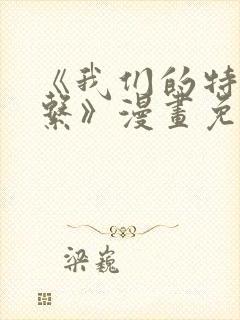 《我们的特
繫》漫畫免
梁巍